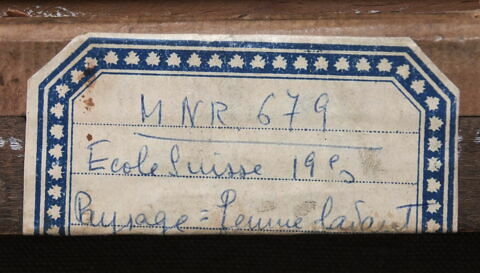 MNR 679
Ecole Suisse 19e s
Paysage = Femme lavant